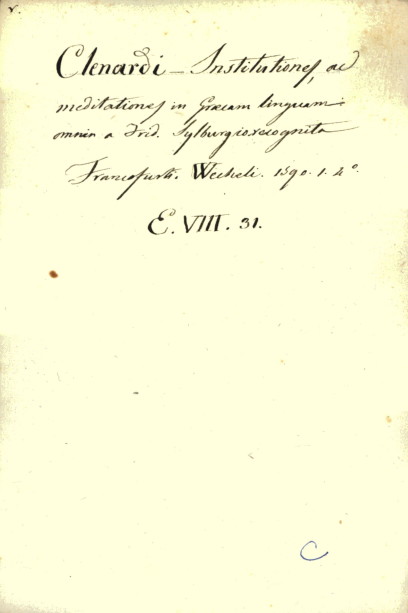 v.
Clenardi – Institutiones, ac
meditationes in Græcam linguam:
omnia a Frid. Sylburgio recognita
Francofurti. Wecheli. 1590. 1. 4°.
E. VIII. 31.
C